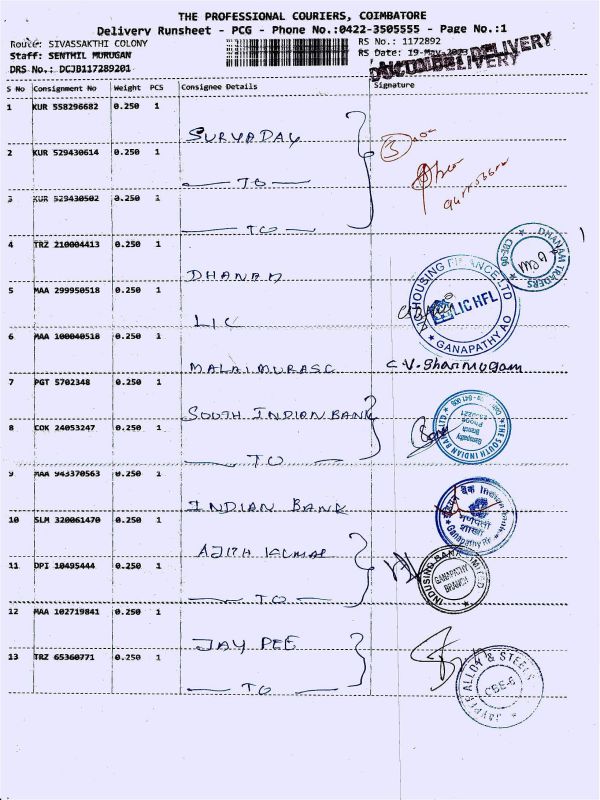 THE PROFESSIONAL COURIERS, COIMBATORE
Delivery Runsheet - PCG - Phone No.:0422-3505555 - Page No.:1
Route: SIVASSAKTHI COLONY RS No.: 1172892
Staff: SENTHIL MURUGAN RS Date: 19-May-2023
DELIVERY
DRS No.: DCJB117289201
S No Consignment No Weight PCS Consignee Details Signature
1 KUR 558296682 0.250 1
SURYADAY
2 KUR 529430614 0.250 1
TO
3 KUR 529430502 0.250 1
TO
4 TRZ 210004413 0.250 1
DHANAM
DHANAM TRADERS
CBE-06
5 MAA 299950518 0.250 1
LIC
LIC HOUSING FINANCE LTD
LIC HFL
GANAPATHY AO
6 MAA 100040518 0.250 1
MALAIMURASU C.V. Shanmugam
7 PGT 5702348 0.250 1
SOUTH INDIAN BANK
THE SOUTH INDIAN BANK LTD
Ganapathy
Branch
Phone
8 COK 24053247 0.250 1
TO
9 MAA 943370563 0.250 1
INDIAN BANK
गणपती
शाखा
Ganapathy Br
10 SLM 320061470 0.250 1
AJITH KUMAR
11 DPI 10495444 0.250 1
INDUSIND BANK LIMITED
GANAPATHY
BRANCH
TO
12 MAA 102719841 0.250 1
JAY PEE
13 TRZ 65360771 0.250 1
TO
JAYPEE ALLOY & STEELS
CBE-6